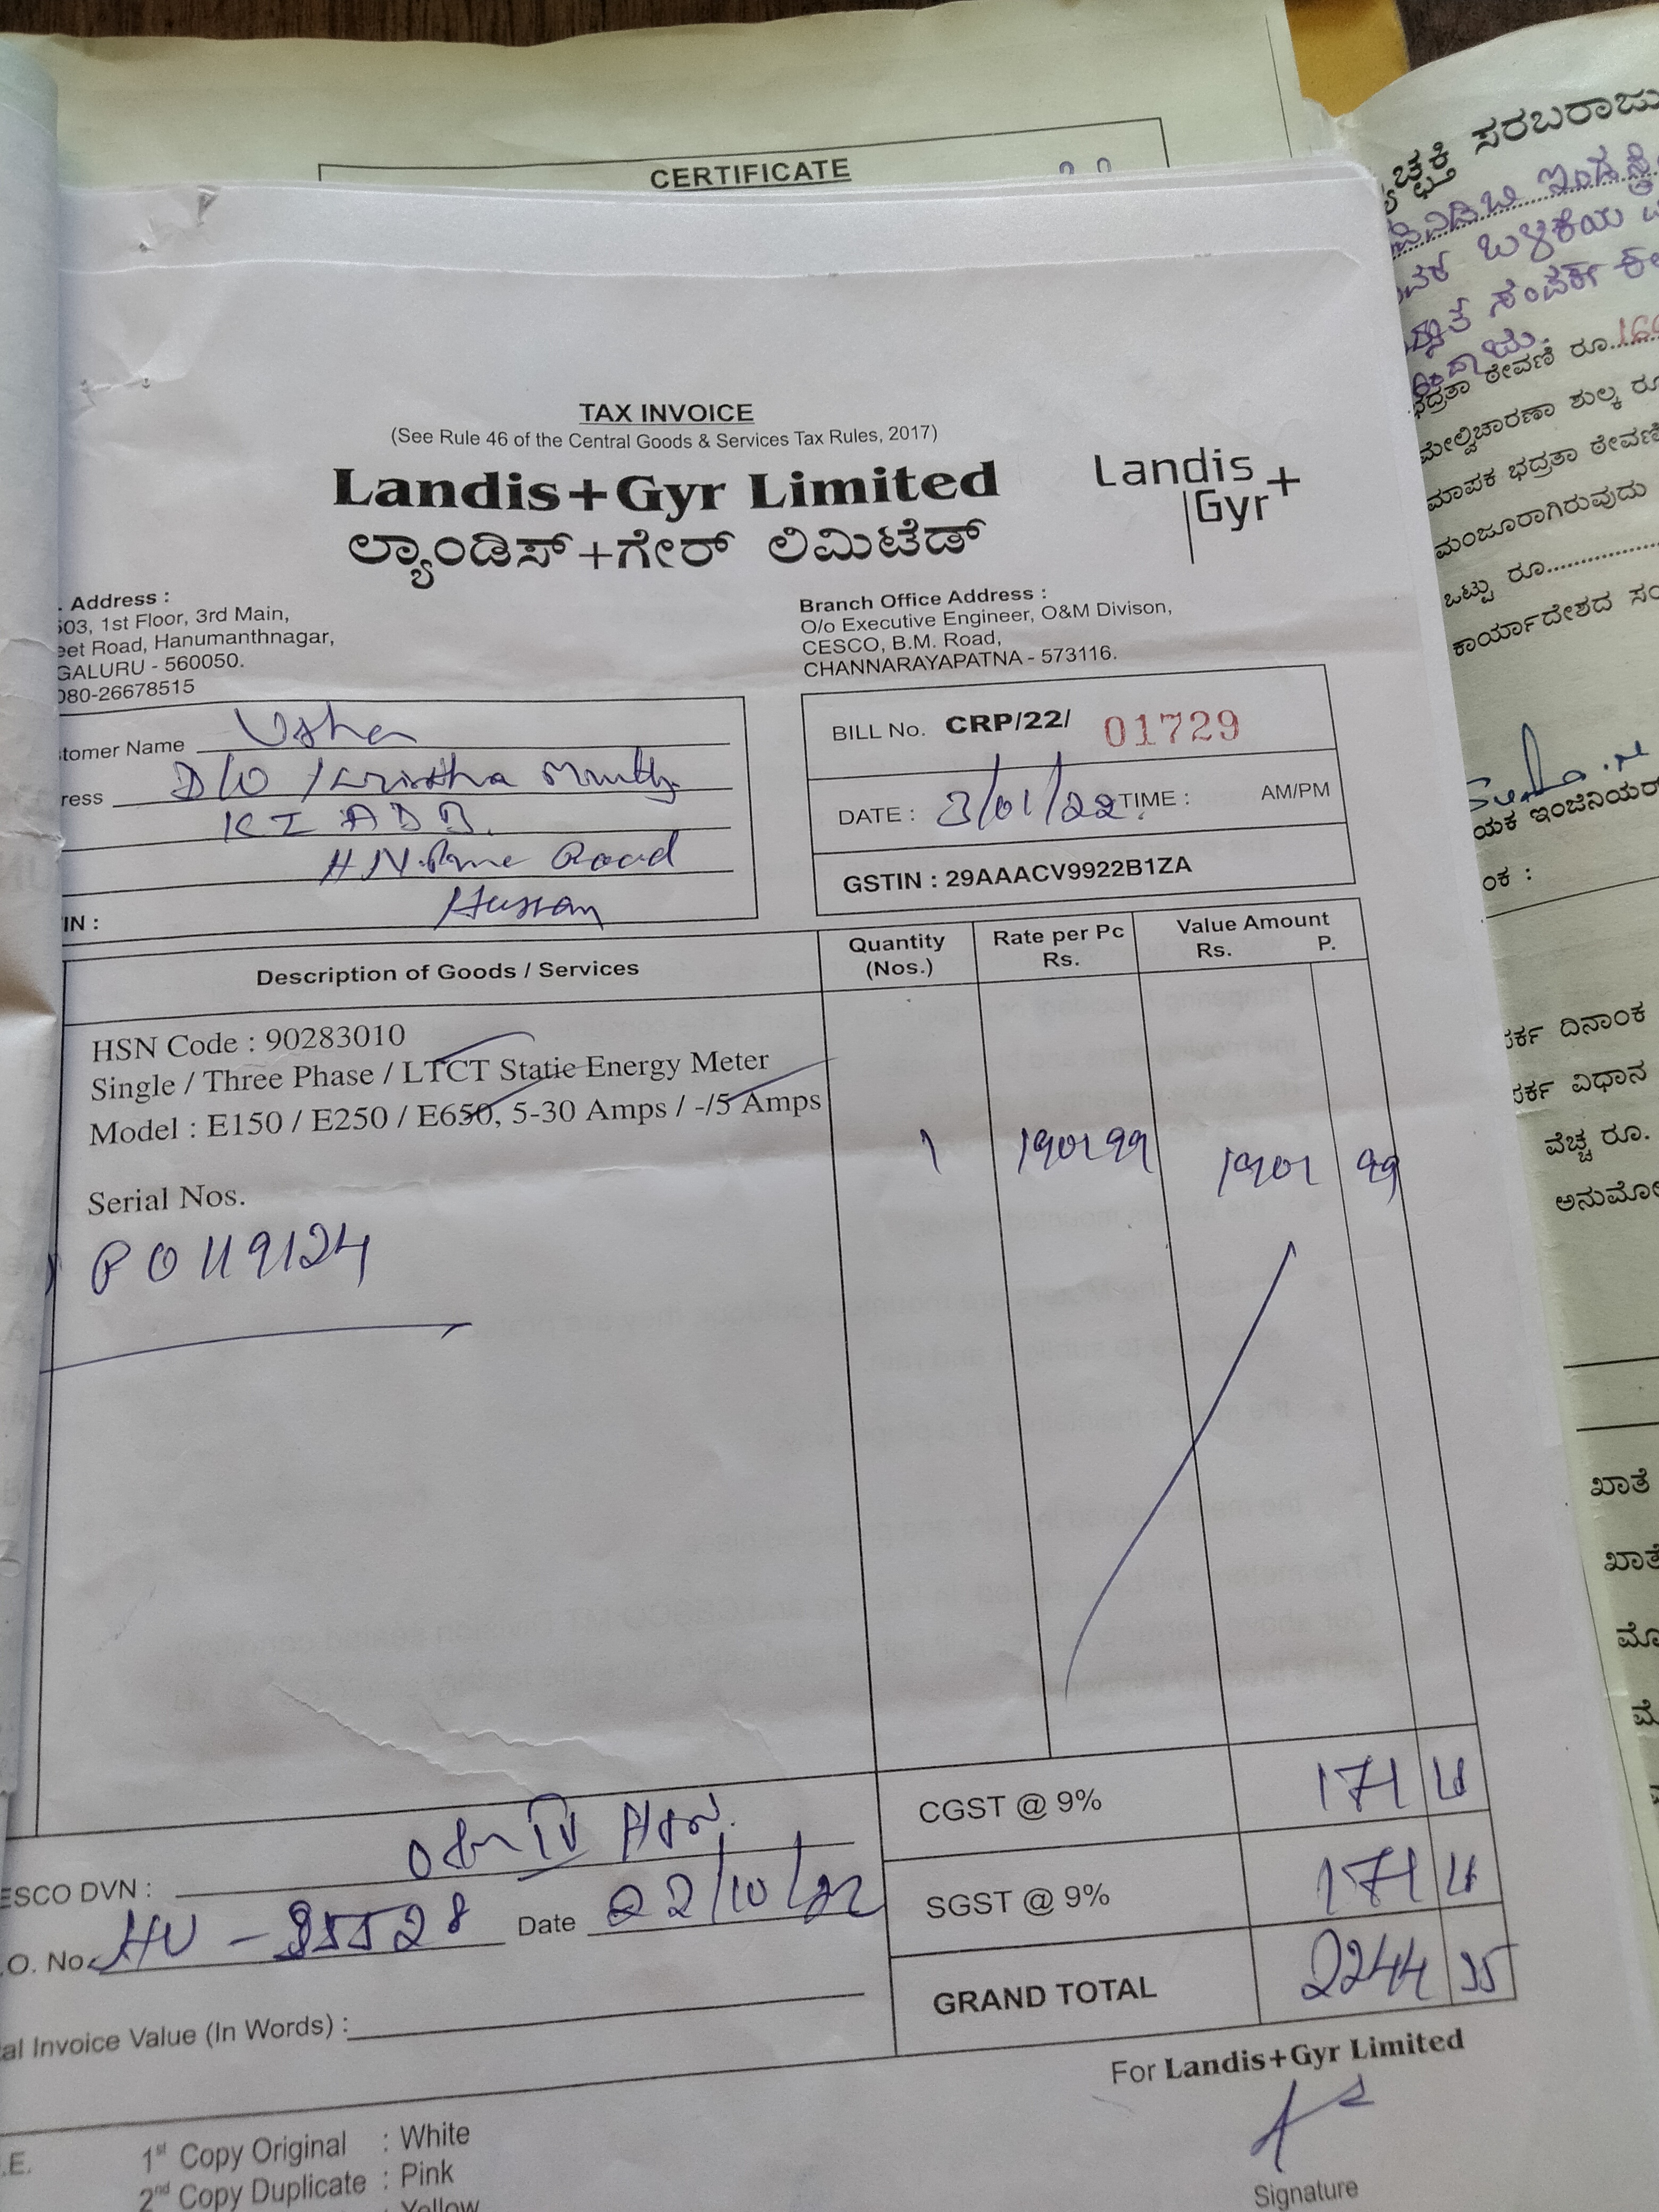 CERTIFICATE
TAX INVOICE
(See Rule 46 of the Central Goods & Services Tax Rules, 2017)
Landis+Gyr Limited
ಲ್ಯಾಂಡಿಸ್+ಗೇರ್ ಲಿಮಿಟೆಡ್
Landis
Gyr+
. Address :
503, 1st Floor, 3rd Main,
eet Road, Hanumanthnagar,
GALURU - 560050.
080-26678515
Branch Office Address :
O/o Executive Engineer, O&M Divison,
CESCO, B.M. Road,
CHANNARAYAPATNA - 573116.
tomer Name Usha
ress D/O Krishna Murthy
K I A D B.
H.N.Pura Road
Hassan
IN :
BILL No. CRP/22/ 01729
DATE : 3/01/22 TIME : AM/PM
GSTIN : 29AAACV9922B1ZA
Description of Goods / Services
Quantity (Nos.)
Rate per Pc Rs.
Value Amount Rs. P.
HSN Code : 90283010
Single / Three Phase / LTCT Static Energy Meter
Model : E150 / E250 / E650, 5-30 Amps / -/5 Amps
1 1901 99 1901 99
Serial Nos.
P0119124
CGST @ 9% 171
SGST @ 9% 171
GRAND TOTAL 2244 35
ESCO DVN : IV HSN.
.O. No. Date 22/10/22
al Invoice Value (In Words) :
For Landis+Gyr Limited
Signature
.E.
1st Copy Original : White
2nd Copy Duplicate : Pink
: Yellow
ಸರಬರಾಜು
ಬಳಕೆಯ
ಸಂಪರ್ಕ
ಭದ್ರತಾ ಠೇವಣಿ ರೂ.
ಮೇಲ್ವಿಚಾರಣಾ ಶುಲ್ಕ ರೂ
ಮಾಪಕ ಭದ್ರತಾ ಠೇವಣಿ
ಮಂಜೂರಾಗಿರುವುದು
ಒಟ್ಟು ರೂ.
ಕಾರ್ಯಾದೇಶದ ಸಂ
ಯಕ ಇಂಜಿನಿಯರ್
ಂಕ :
ರ್ಕ ದಿನಾಂಕ
ರ್ಕ ವಿಧಾನ
ವೆಚ್ಚ ರೂ.
ಅನುಮೋ
ಖಾತೆ
ಖಾತೆ
ಮೊ